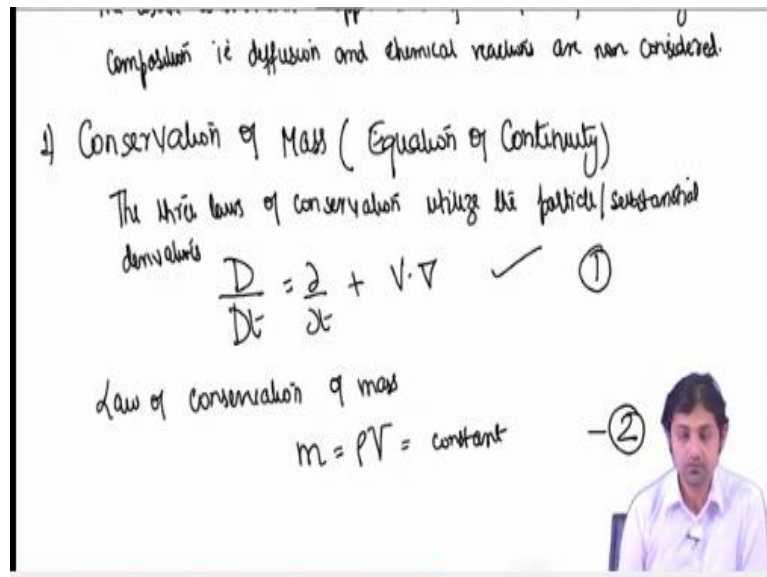 Composition ie diffusion and chemical reactions are non considered.
1) Conservation of Mass ( Equation of Continuity)
The three laws of conservation utilize the particle/substantial
derivatives
D/Dt = ∂/∂t + V·∇ ✓ ①
Law of conservation of mass
m = ρV = constant -②